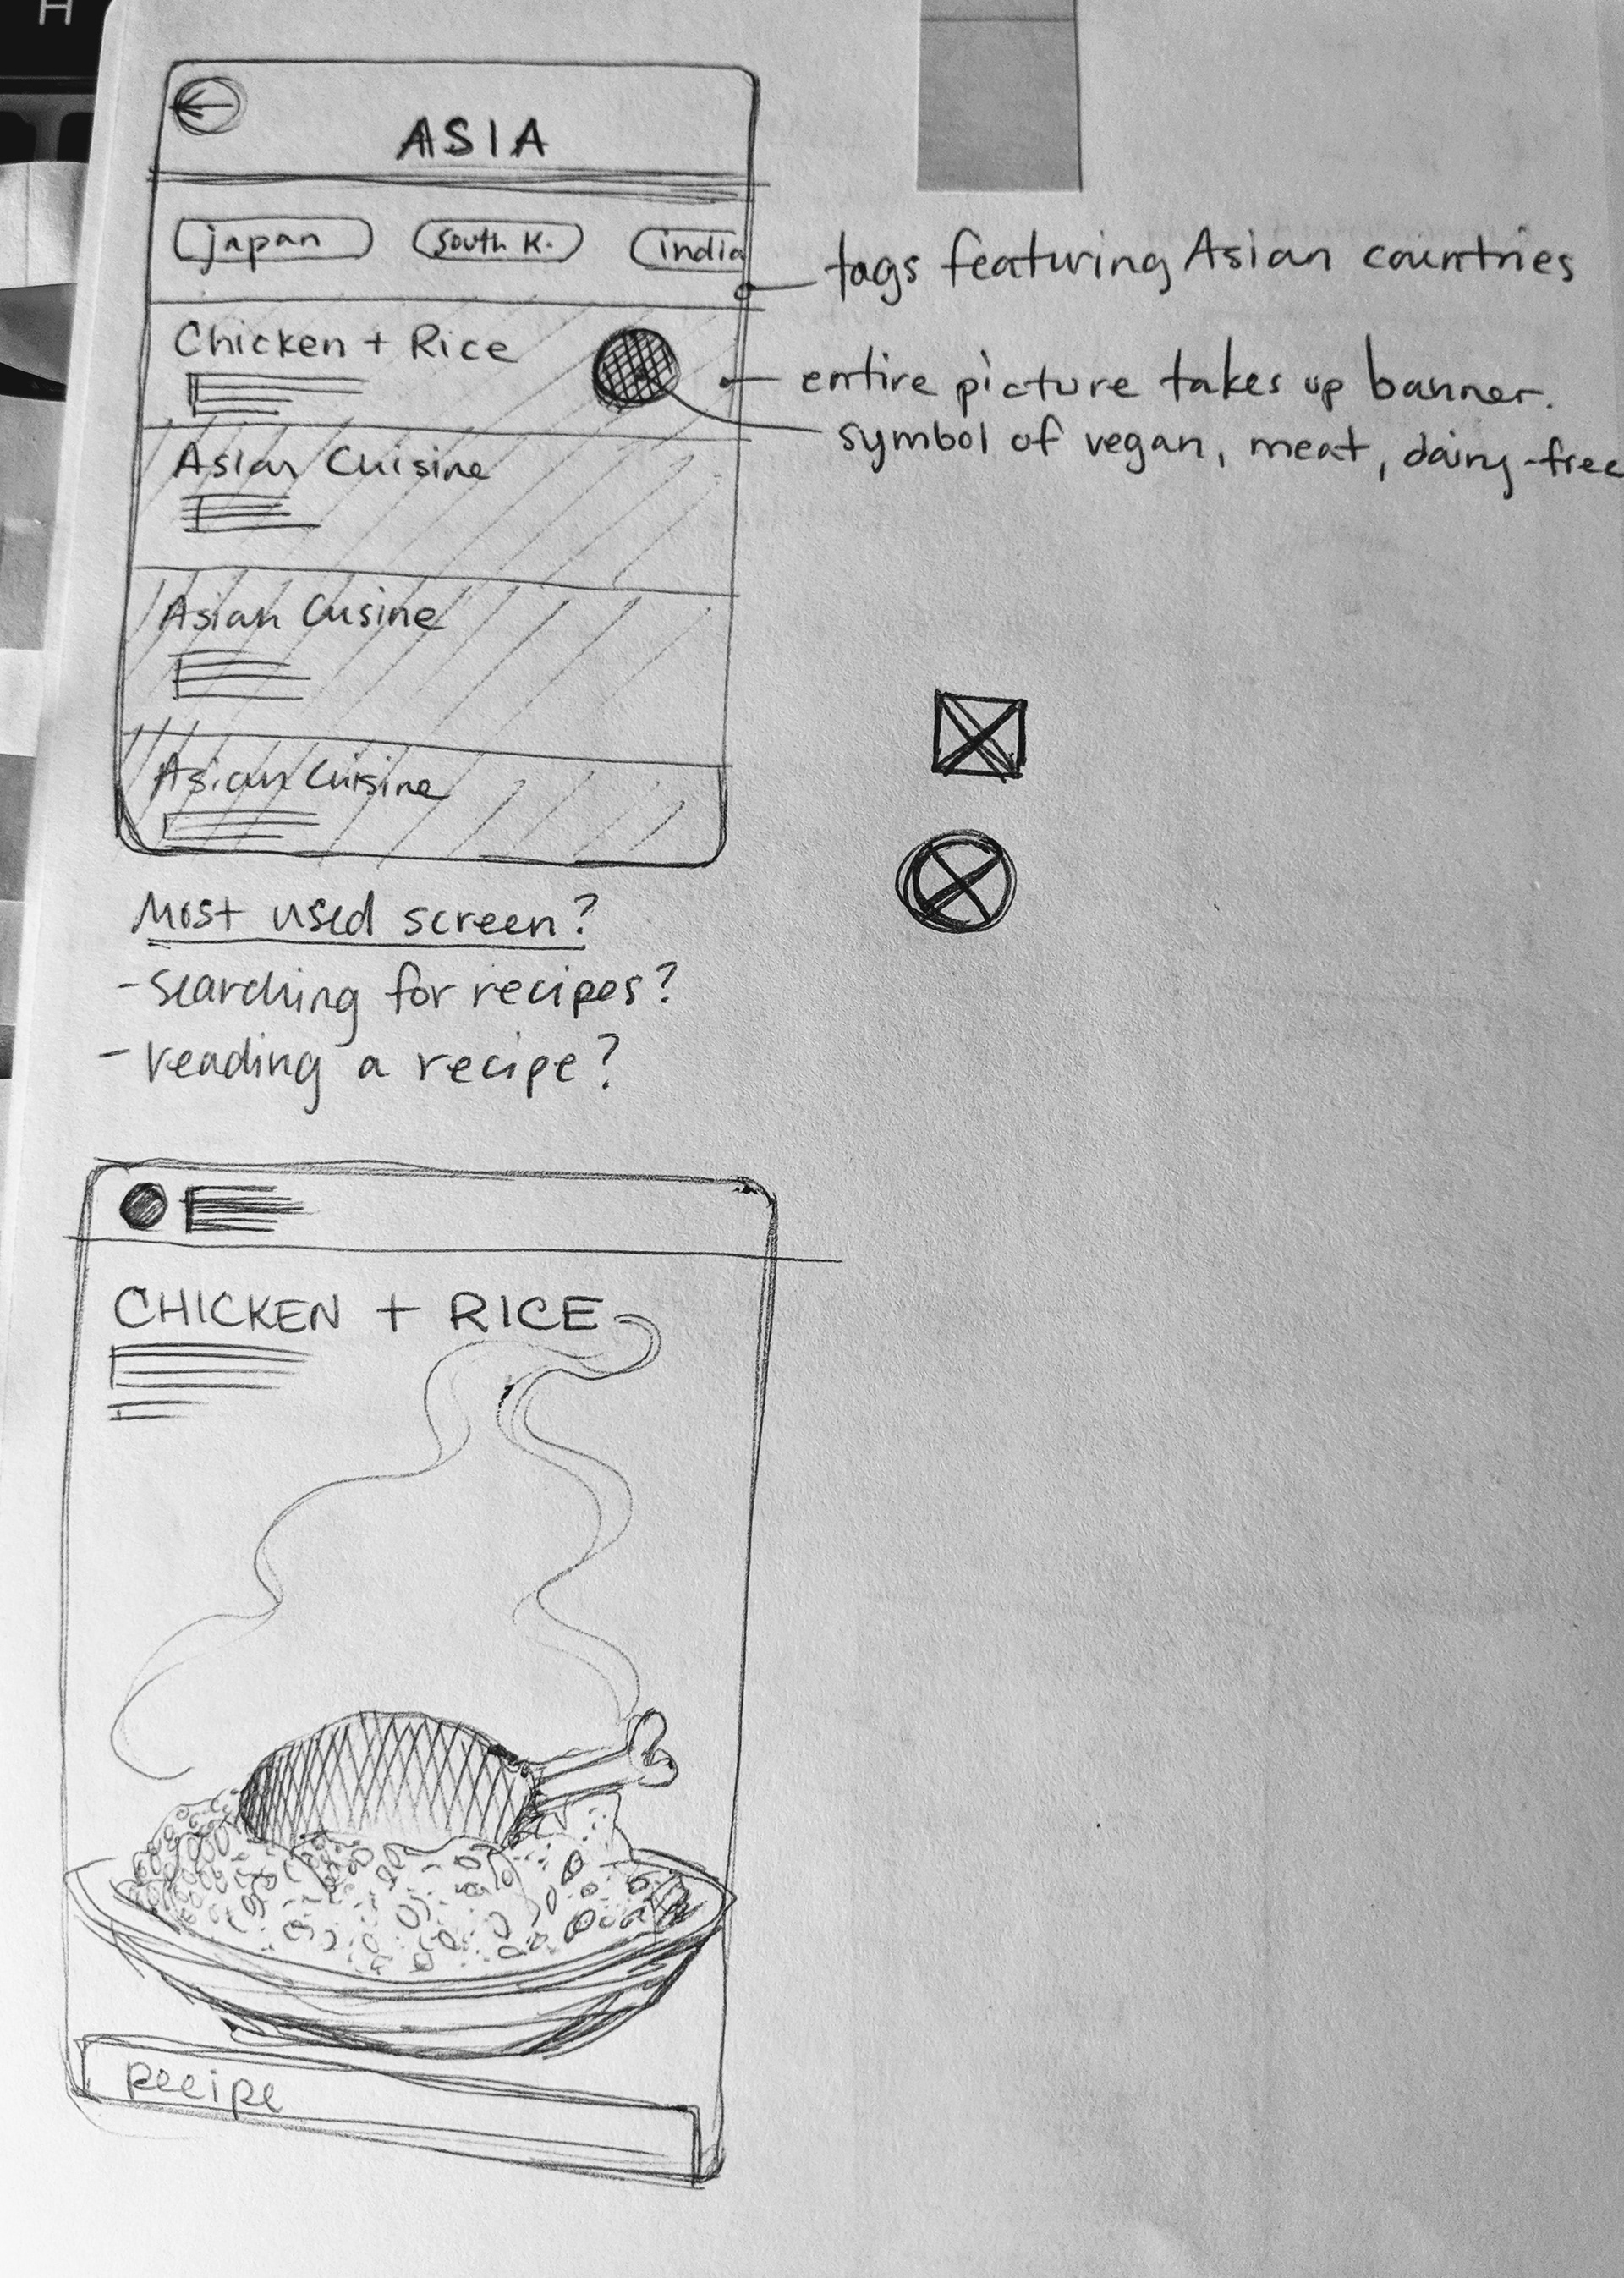 H
ASIA
japan
South K.
india
tags featuring Asian countries
Chicken + Rice
entire picture takes up banner.
symbol of vegan, meat, dairy-free
Asian Cuisine
Asian Cusine
Asian Cuisine
Most used screen?
- searching for recipes?
- reading a recipe?
CHICKEN + RICE
Recipe